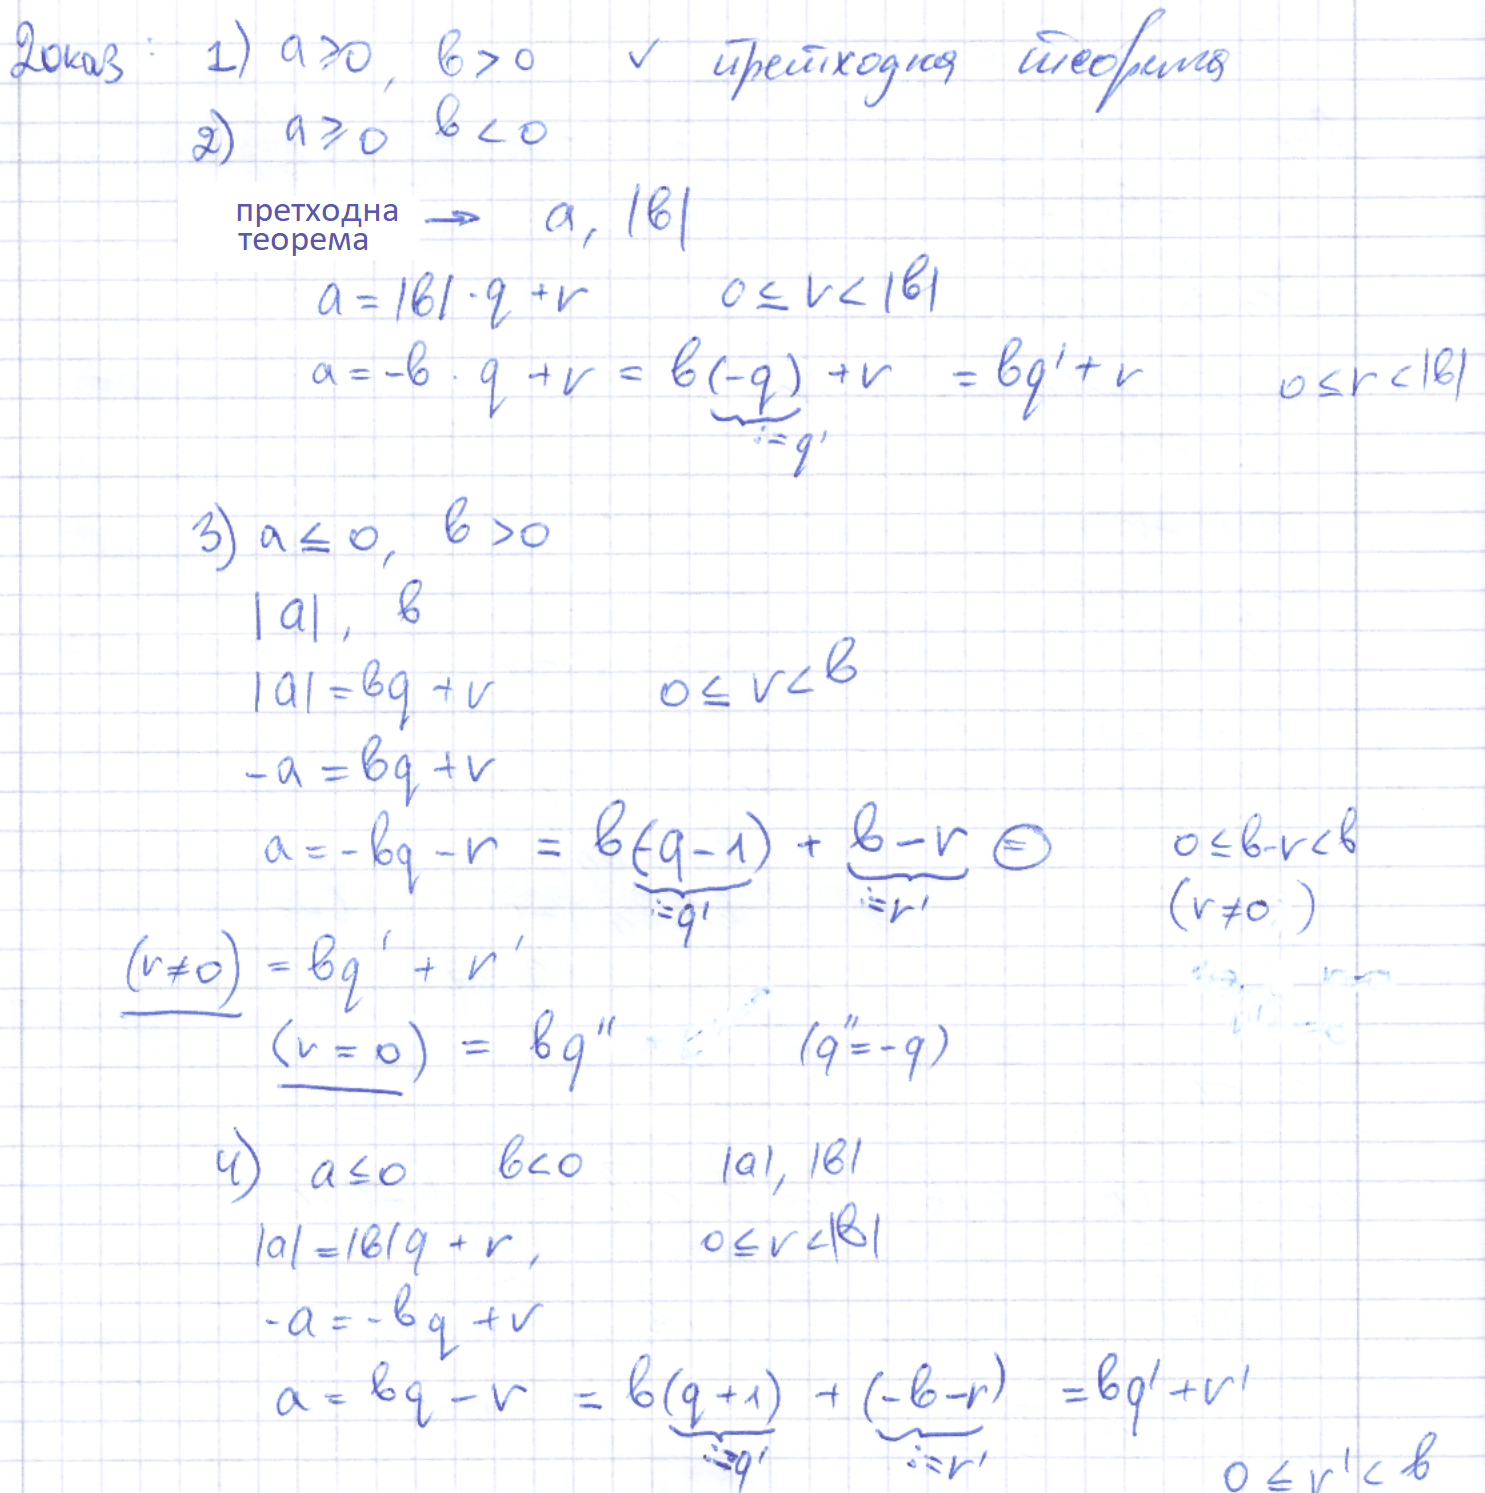 Доказ: 1) a ≥ 0, b > 0 ✓ претходна теорема
2) a ≥ 0 b < 0
претходна
теорема → a, |b|
a = |b| · q + r 0 ≤ r < |b|
a = -b · q + r = b(-q) + r = bq' + r 0 ≤ r < |b|
:= q'
3) a ≤ 0, b > 0
|a|, b
|a| = bq + r 0 ≤ r < b
-a = bq + r
a = -bq - r = b(-q-1) + b - r = 0 ≤ b-r < b
:= q' := r' (r ≠ 0)
(r ≠ 0) = bq' + r'
(r = 0) = bq'' (q'' = -q)
4) a ≤ 0 b < 0 |a|, |b|
|a| = |b|q + r, 0 ≤ r < |b|
-a = -bq + r
a = bq - r = b(q+1) + (-b-r) = bq' + r'
:= q' := r' 0 ≤ r' < b